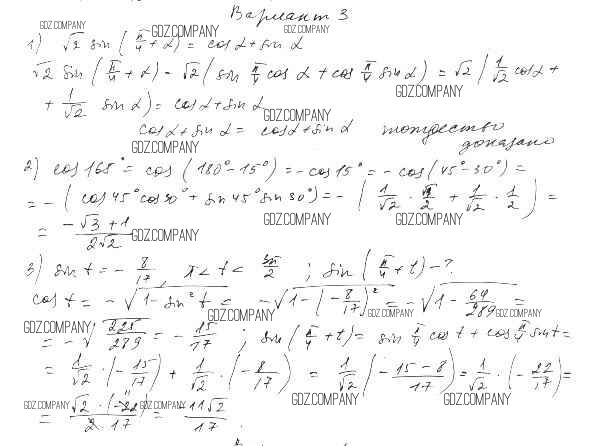 Вариант 3
GDZ.COMPANY GDZ.COMPANY GDZ.COMPANY
1) √2 sin(π/4 + α) = cos α + sin α
√2 sin(π/4 + α) = √2(sin π/4 cos α + cos π/4 sin α) = √2(1/√2 cos α +
GDZ.COMPANY
+ 1/√2 sin α) = cos α + sin α
GDZ.COMPANY
cos α + sin α = cos α + sin α тождество
GDZ.COMPANY
доказано
2) cos 165° = cos(180° - 15°) = - cos 15° = - cos(45° - 30°) =
= -(cos 45° cos 30° + sin 45° sin 30°) = -(1/√2 · √3/2 + 1/√2 · 1/2) =
GDZ.COMPANY GDZ.COMPANY
= -√3 + 1 / 2√2
GDZ.COMPANY
3) sin t = - 8/17, π < t < 3π/2 ; sin(π/4 + t) - ?
cos t = -√(1 - sin² t) = -√(1 - (-8/17)²) = -√(1 - 64/289) =
GDZ.COMPANY GDZ.COMPANY GDZ.COMPANY GDZ.COMPANY
= -√(225/289) = - 15/17 ; sin(π/4 + t) = sin π/4 cos t + cos π/4 sin t =
= 1/√2 · (-15/17) + 1/√2 · (-8/17) = 1/√2 (-15 - 8 / 17) = 1/√2 · (-22/17) =
GDZ.COMPANY GDZ.COMPANY GDZ.COMPANY GDZ.COMPANY
= √2 · (-22) / 2 · 17 = 11√2 / 17 .